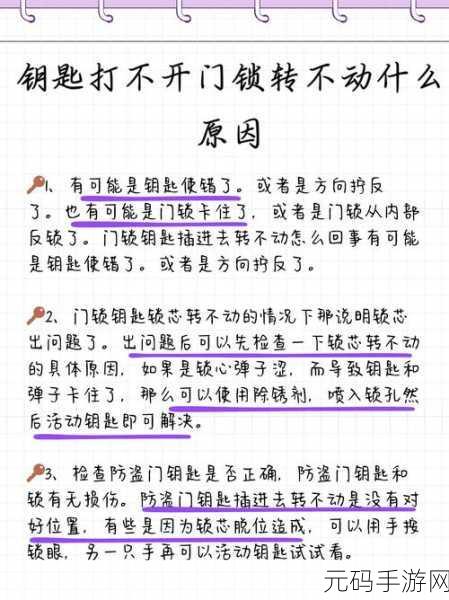 钥匙打不开门锁转不动什么
原因
1、有可能是钥匙使错了。或者是方向拧反
了。也有可能是门锁卡住了，或者是门锁从内部
反锁了。门锁钥匙插进去转不动怎么回事有可能
是钥匙使错了。或者是方向拧反了。
2、门锁钥匙锁芯转不动的情况下那说明锁芯
出问题了。出问题后可以先检查一下锁芯转不动
的具体原因，如果是锁心弹子涩，而导致钥匙和
弹子卡住了，那么可以使用除锈剂，喷入锁孔然
后活动钥匙即可解决。
3、检查防盗门钥匙是否正确，防盗门钥匙和
锁有无损伤。防盗门钥匙插进去转不动是没有对
好位置，有些是因为锁芯脱位造成，可以用手按
锁眼，另一只手再可以活动钥匙试试看。
元码手游网